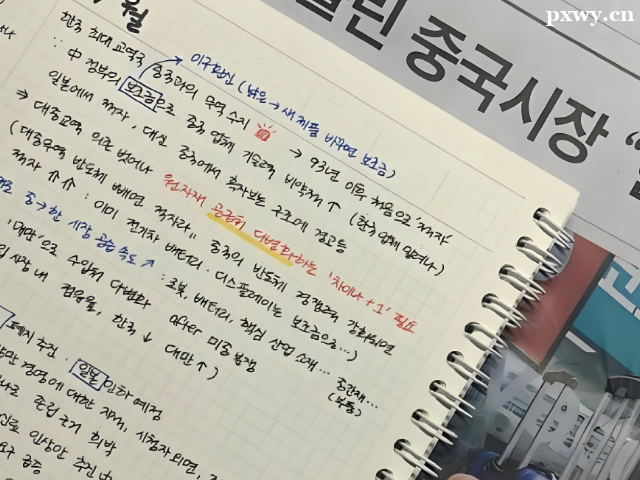 pxwy.cn
린 중국시장 "
월
한국 최대 교역국 중국과의 무역 수지 → 93년 이후 처음으로 '적자'
이구환신 (낡은 → 새 제품 바꾸면 보조금)
∵ 中 정부의 보조금으로 중국 업체 기술력 비약적 ↑ (한국 업체 밀려나)
일본에서 적자, 대신 중국에서 흑자보는 구조에 경고등
⇒ 대중교역 의존 벗어나 원자재 공급처 다변화하는 '차이나 + 1' 필요
(대중무역 반도체 빼면 적자라, 중국의 반도체 경쟁력 강화되면
적자 ↑↑ : 이미 전기차 배터리·디스플레이는 보조금으로...)
중→한 시장 공습 속도 ↗ : 로봇, 배터리, 핵심 산업 소재... 중간재...
(부품)
'대만'으로 수입처 다변화 after 미중 분쟁
시장 내 점유율, 한국 ↓ 대만 ↑)
폐지 추진 · 일본 인하 예정
경영에 대한 지적, 시청자 외면,
존립 근거 희박
인상안 추진
요구 급증